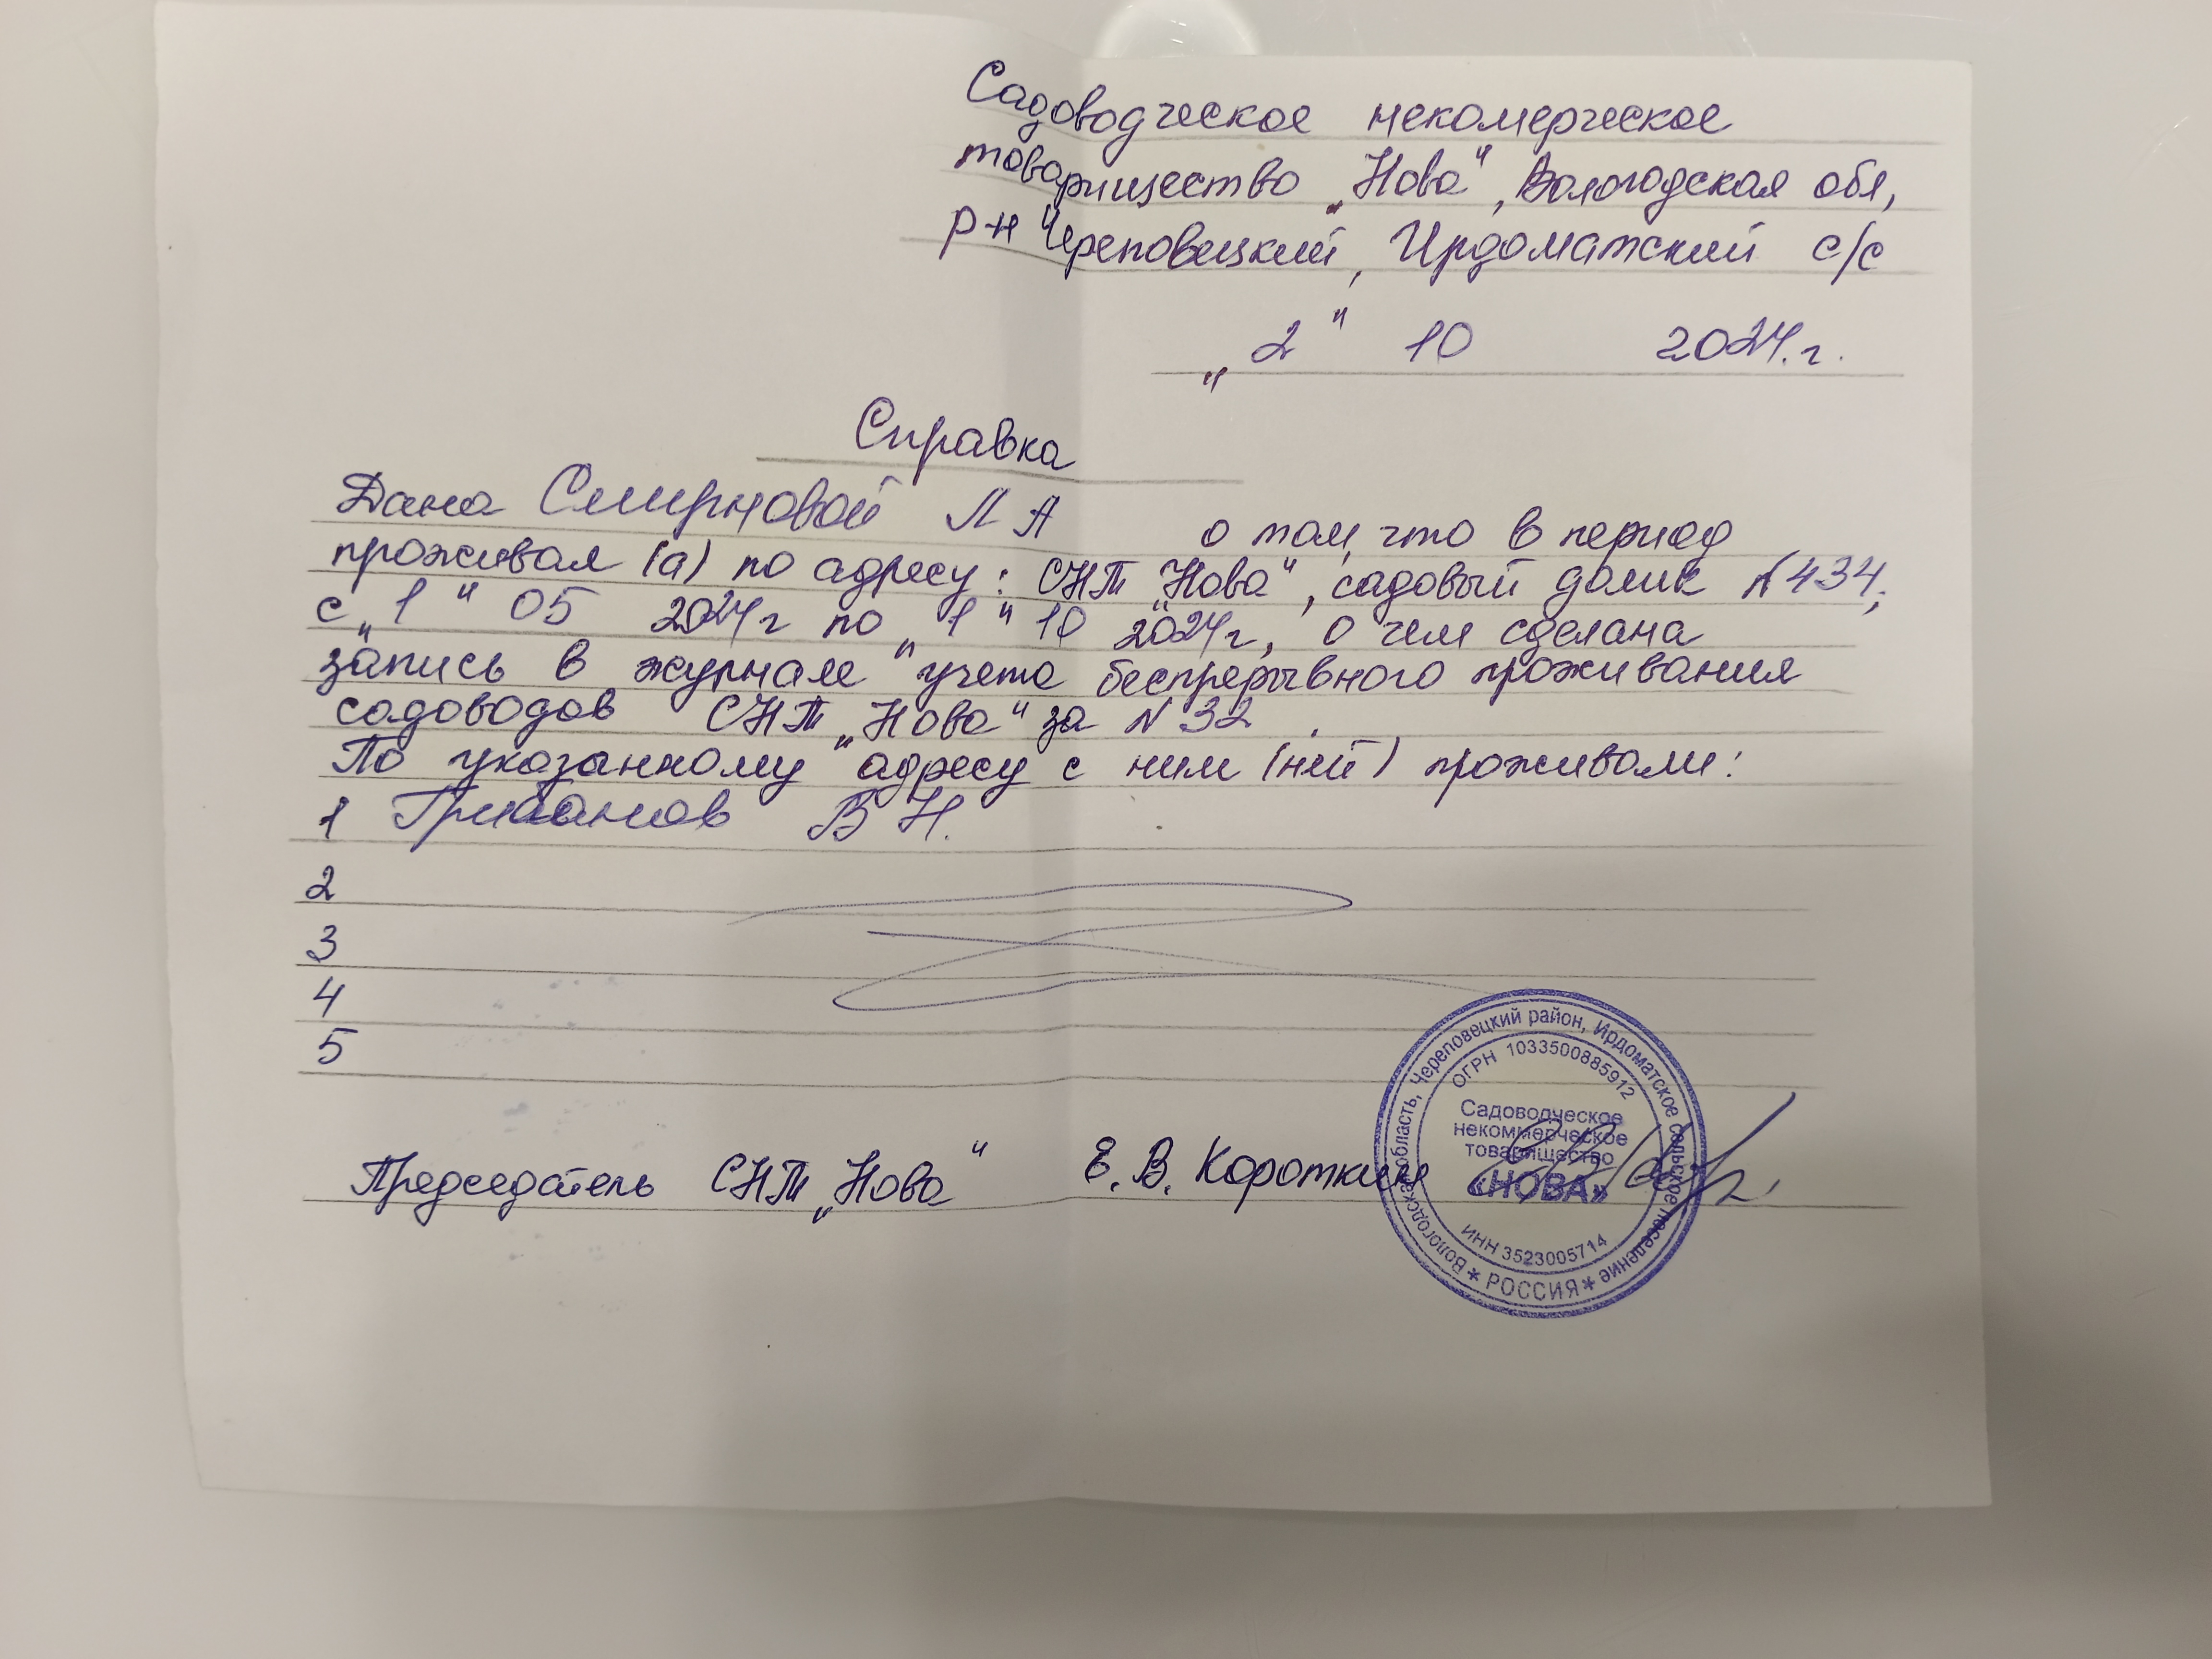 Садоводческое некомерческое
товарищество „Нова“, Вологодская обл,
р-н Череповецкий, Ирдоматский с/с
„2“ 10 2024.г.
Справка
Дана Смирновой Л А о том, что в период
проживал (а) по адресу: СНТ „Нова“, садовый домик №434,
с „1“ 05 2024г по „1“ 10 2024г, о чем сделана
запись в журнале "учета беспрерывного проживания
садоводов СНТ „Нова“ за №32.
По указанному адресу с ним (ней) проживали:
1 Грибанов В Н.
2
3
4
5
Председатель СНТ „Нова“ Е. В. Короткий
Вологодская область, Череповецкий район, Ирдоматское сельское поселение
ОГРН 1033500885912
Садоводческое
некоммерческое
товарищество
«НОВА»
ИНН 3523005714
* РОССИЯ *